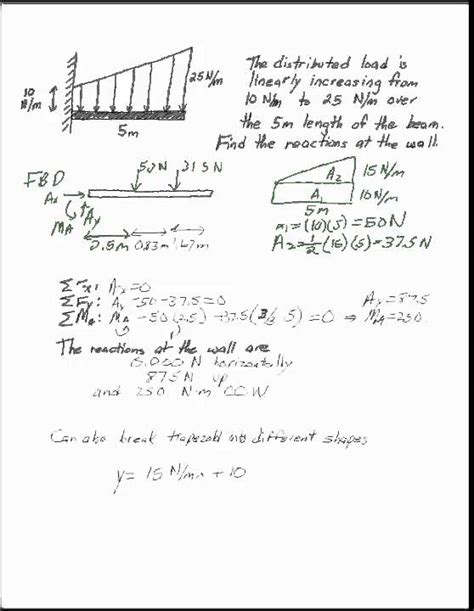 The distributed load is
linearly increasing from
10 N/m to 25 N/m over
the 5m length of the beam.
Find the reactions at the wall.
25 N/m
10
N/m
5m
FBD
50N 37.5N
Ax
MA Ay
2.5m 0.83m 1.67m
A2 15 N/m
A1 10 N/m
5m
A1=(10)(5)=50N
A2=1/2(15)(5)=37.5N
ΣFx: Ax=0
ΣFy: Ay-50-37.5=0 Ay=87.5
ΣMA: MA-50(2.5)-37.5(2/3 5)=0 ⇒ MA=250.
The reactions at the wall are
0.000 N horizontally
87.5 N up
and 250 N·m CCW
Can also break trapezoid into different shapes
y= 15 N/m + 10